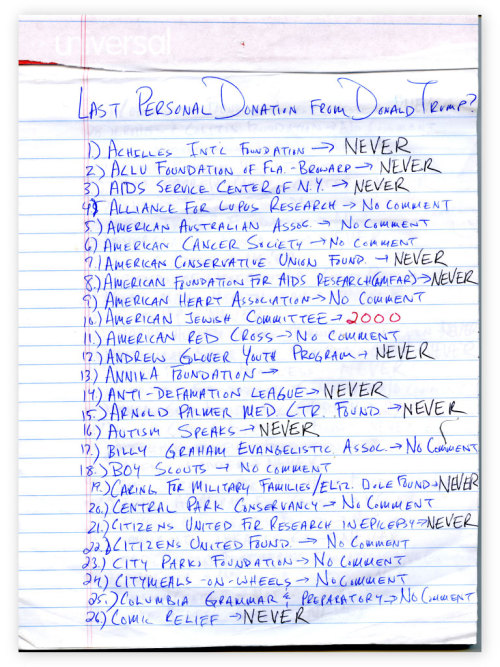 universal
LAST PERSONAL DONATION FROM DONALD TRUMP?
1) ACHILLES INT'L FOUNDATION → NEVER
2) ACLU FOUNDATION OF FLA.-BROWARD → NEVER
3) AIDS SERVICE CENTER OF N.Y. → NEVER
4) ALLIANCE FOR LUPUS RESEARCH → NO COMMENT
5) AMERICAN AUSTRALIAN ASSOC. → NO COMMENT
6) AMERICAN CANCER SOCIETY → NO COMMENT
7.) AMERICAN CONSERVATIVE UNION FOUND. → NEVER
8.) AMERICAN FOUNDATION FOR AIDS RESEARCH (AMFAR) → NEVER
9) AMERICAN HEART ASSOCIATION → NO COMMENT
10.) AMERICAN JEWISH COMMITTEE → 2000
11.) AMERICAN RED CROSS → NO COMMENT
12) ANDREW GLOVER YOUTH PROGRAM → NEVER
13) ANNIKA FOUNDATION →
14) ANTI-DEFAMATION LEAGUE → NEVER
15.) ARNOLD PALMER MED CTR. FOUND → NEVER
16) AUTISM SPEAKS → NEVER
17.) BILLY GRAHAM EVANGELISTIC ASSOC. → NO COMMENT
18.) BOY SCOUTS → NO COMMENT
19.) CARING FOR MILITARY FAMILIES/ELIZ. DOLE FOUND → NEVER
20.) CENTRAL PARK CONSERVANCY → NO COMMENT
21.) CITIZENS UNITED FOR RESEARCH IN EPILEPSY → NEVER
22.) CITIZENS UNITED FOUND. → NO COMMENT
23.) CITY PARKS FOUNDATION → NO COMMENT
24) CITYMEALS-ON-WHEELS → NO COMMENT
25.) COLUMBIA GRAMMAR & PREPARATORY → NO COMMENT
26) COMIC RELIEF → NEVER